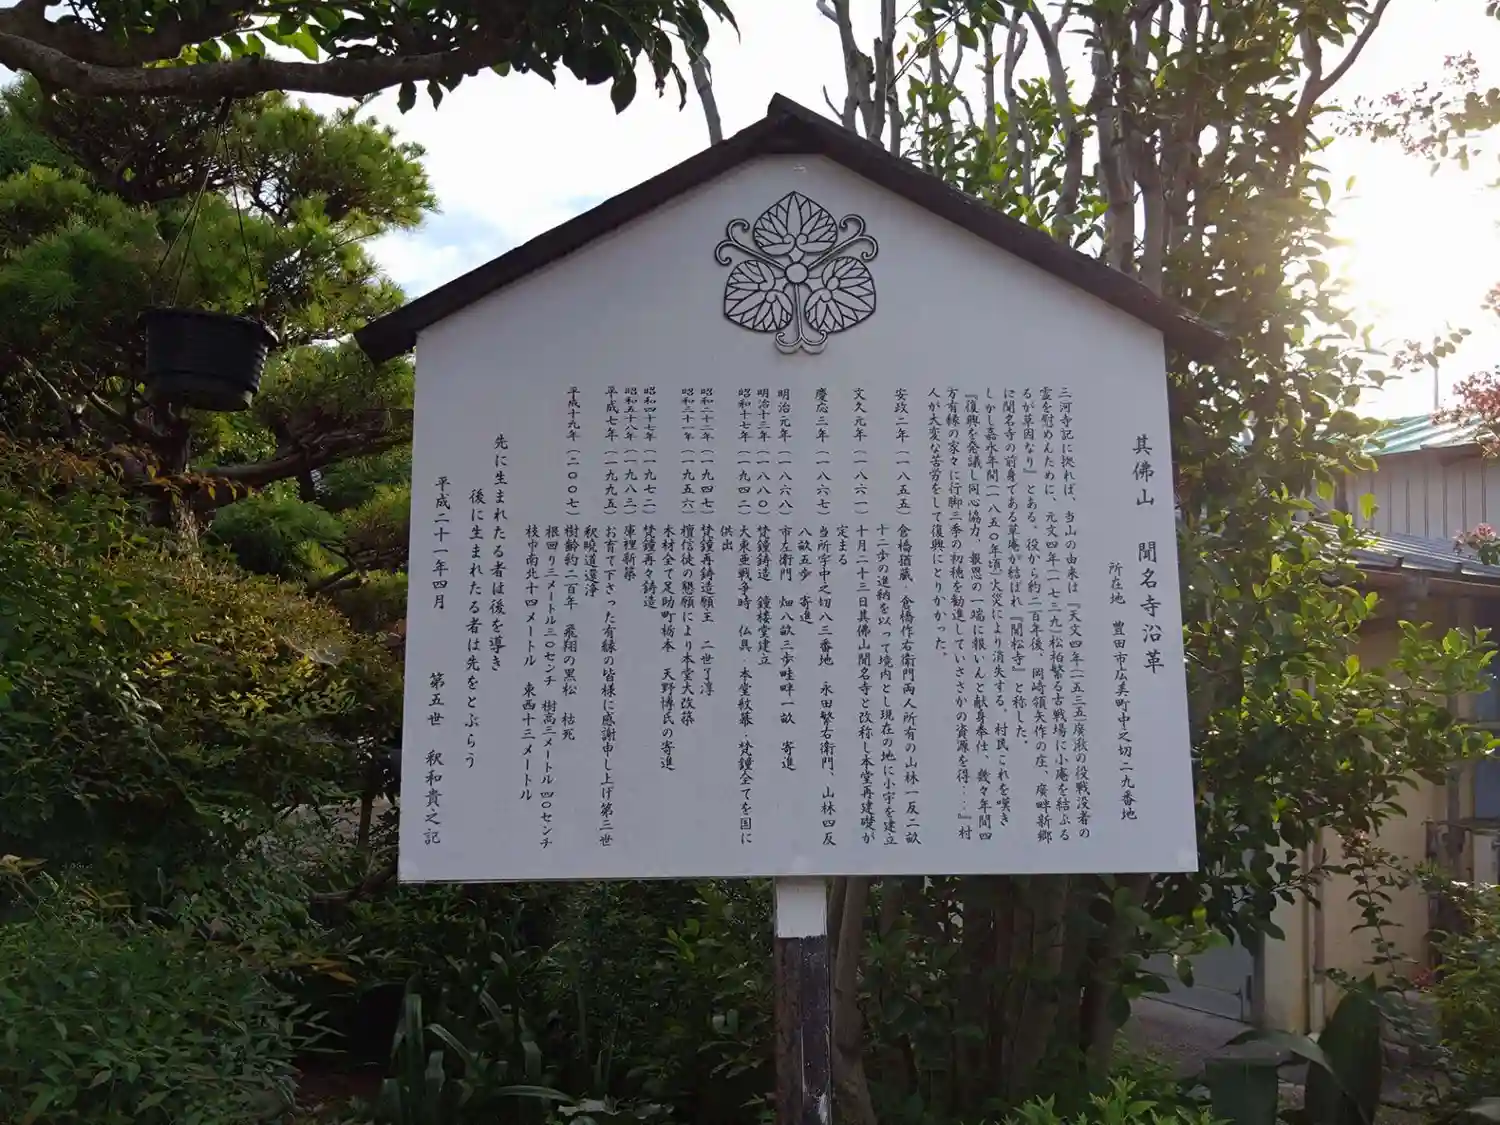 其佛山　聞名寺沿革
所在地　豊田市広美町中之切二九番地
三河寺記に拠れば、当山の由来は『天文四年(一五三五)廣瀬の役戦没者の
霊を慰めんために、元文四年(一七三九)松柏繁る古戦場に小庵を結ぶる
るが草因なり』とある。役から約二百年後、岡崎領矢作の庄、廣畔新郷
に聞名寺の前身である草庵が結ばれ『聞松寺』と称した。
しかし嘉永年間(一八五〇年頃)火災により消失する。村民これを嘆き
『復興を発議し同心協力、報恩の一端に報いんと献身奉仕、幾々年間四
方有縁の家々に行脚三季の初穂を勧進していささかの資源を得・・・』村
人が大変な苦労をして復興にとりかかった。
安政二年(一八五五)　倉橋猶蔵　倉橋作右衛門両人所有の山林一反二畝
十二歩の進納を以って境内とし現在の地に小宇を建立
文久元年(一八六一)　十月二十三日其佛山聞名寺と改称し本堂再建礎が
定まる
慶応三年(一八六七)　当所字中之切八三番地　永田繁右衛門、山林四反
八畝五歩　寄進
明治元年(一八六八)　市左衛門　畑八畝三歩畦畔一畝　寄進
明治十三年(一八八〇)　梵鐘鋳造　鐘楼堂建立
昭和十七年(一九四二)　大東亜戦争時　仏具・本堂紋幕・梵鐘全てを国に
供出
昭和二十二年(一九四七)　梵鐘再鋳造願主　二世了淳
昭和三十一年(一九五六)　檀信徒の懇願により本堂大改築
木材全て足助町栃本　天野博氏の寄進
昭和四十七年(一九七二)　梵鐘再々鋳造
昭和五十八年(一九八三)　庫裡新築
平成七年(一九九五)　お育て下さった有縁の皆様に感謝申し上げ第三世
釈暁道還浄
平成十九年(二〇〇七)　樹齢約二百年　飛翔の黒松　枯死
根回り三メートル三〇センチ　樹高三メートル四〇センチ
枝巾南北十四メートル　東西十三メートル
先に生まれたる者は後を導き
後に生まれたる者は先をとぶらう
平成二十一年四月　第五世　釈和貴之記